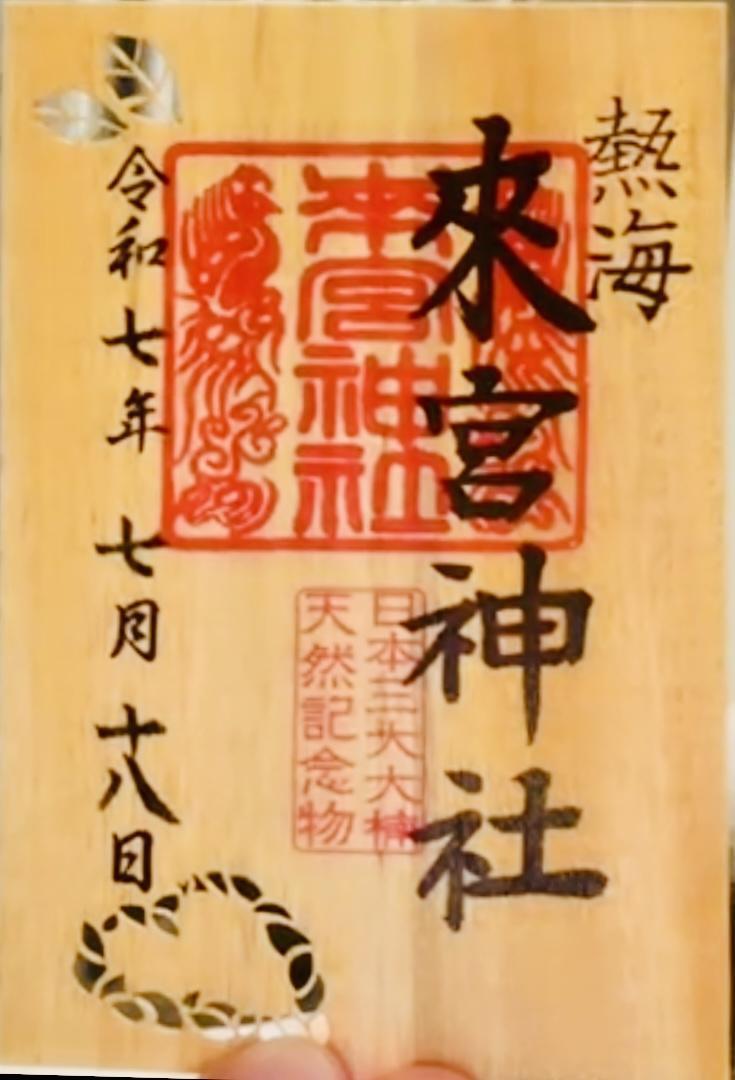 熱海
來宮神社
來宮神社
日本三大大楠
天然記念物
令和七年 七月 十八日